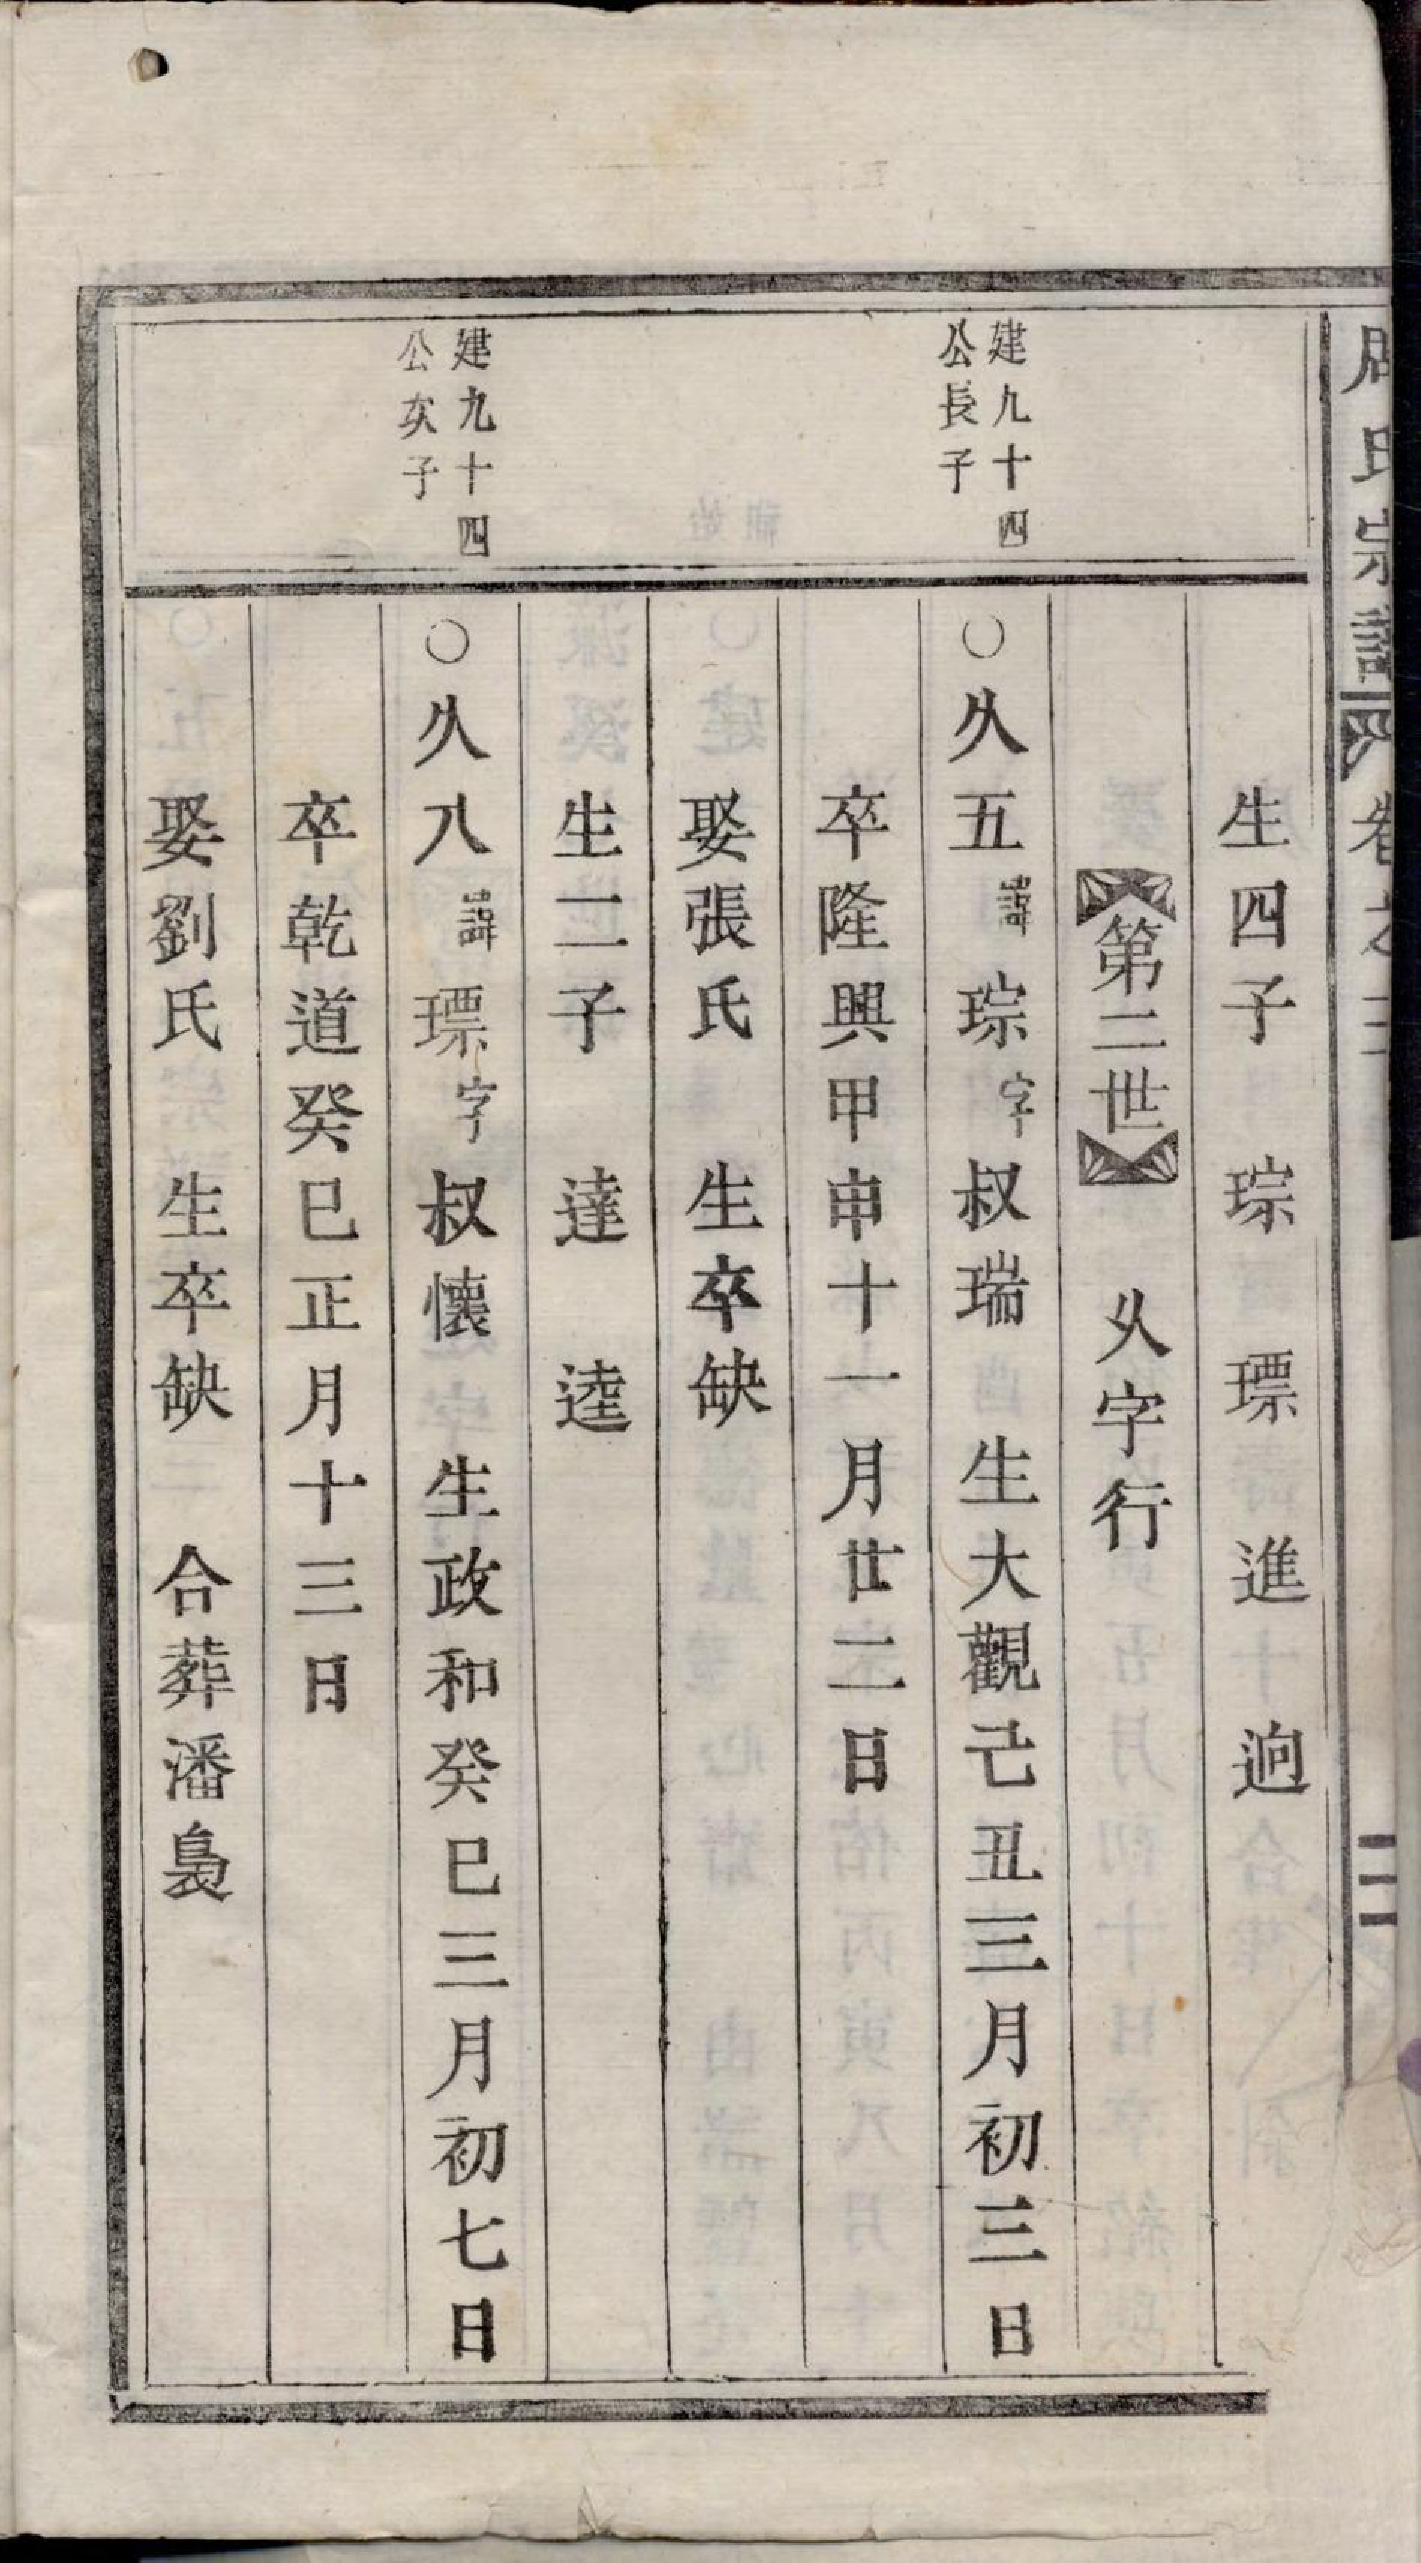 周氏宗譜 卷之二
生四子 琮 瑮 進 逈
第二世 乆字行
建九十四
公長子
○久五諱琮字叔瑞 生大觀己丑三月初三日
卒隆興甲申十一月廿二日
娶張氏 生卒缺
生二子 達 逵
建九十四
公次子
○久八諱瑮字叔懷 生政和癸巳三月初七日
卒乾道癸巳正月十三日
娶劉氏 生卒缺 合葬潘